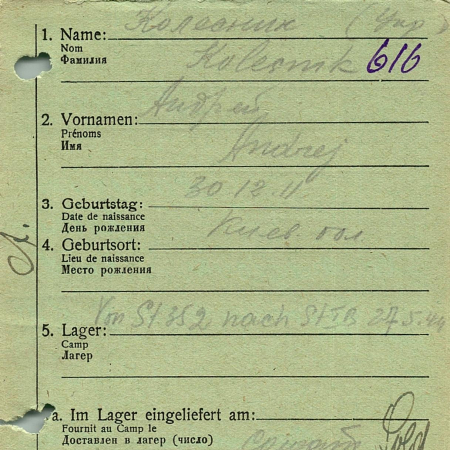 Колесник (Укр)
1. Name:
Nom
Фамилия
Kolesnik 616
Андрей
2. Vornamen:
Prénoms
Имя
Andrej
30 12 11
3. Geburtstag:
Date de naissance
День рождения
Киев. обл.
4. Geburtsort:
Lieu de naissance
Место рождения
Von St 352 nach St IB 27.5.44
5. Lager:
Camp
Лагерь
a. Im Lager eingeliefert am:
Fournit au Camp le
Доставлен в лагерь (число)